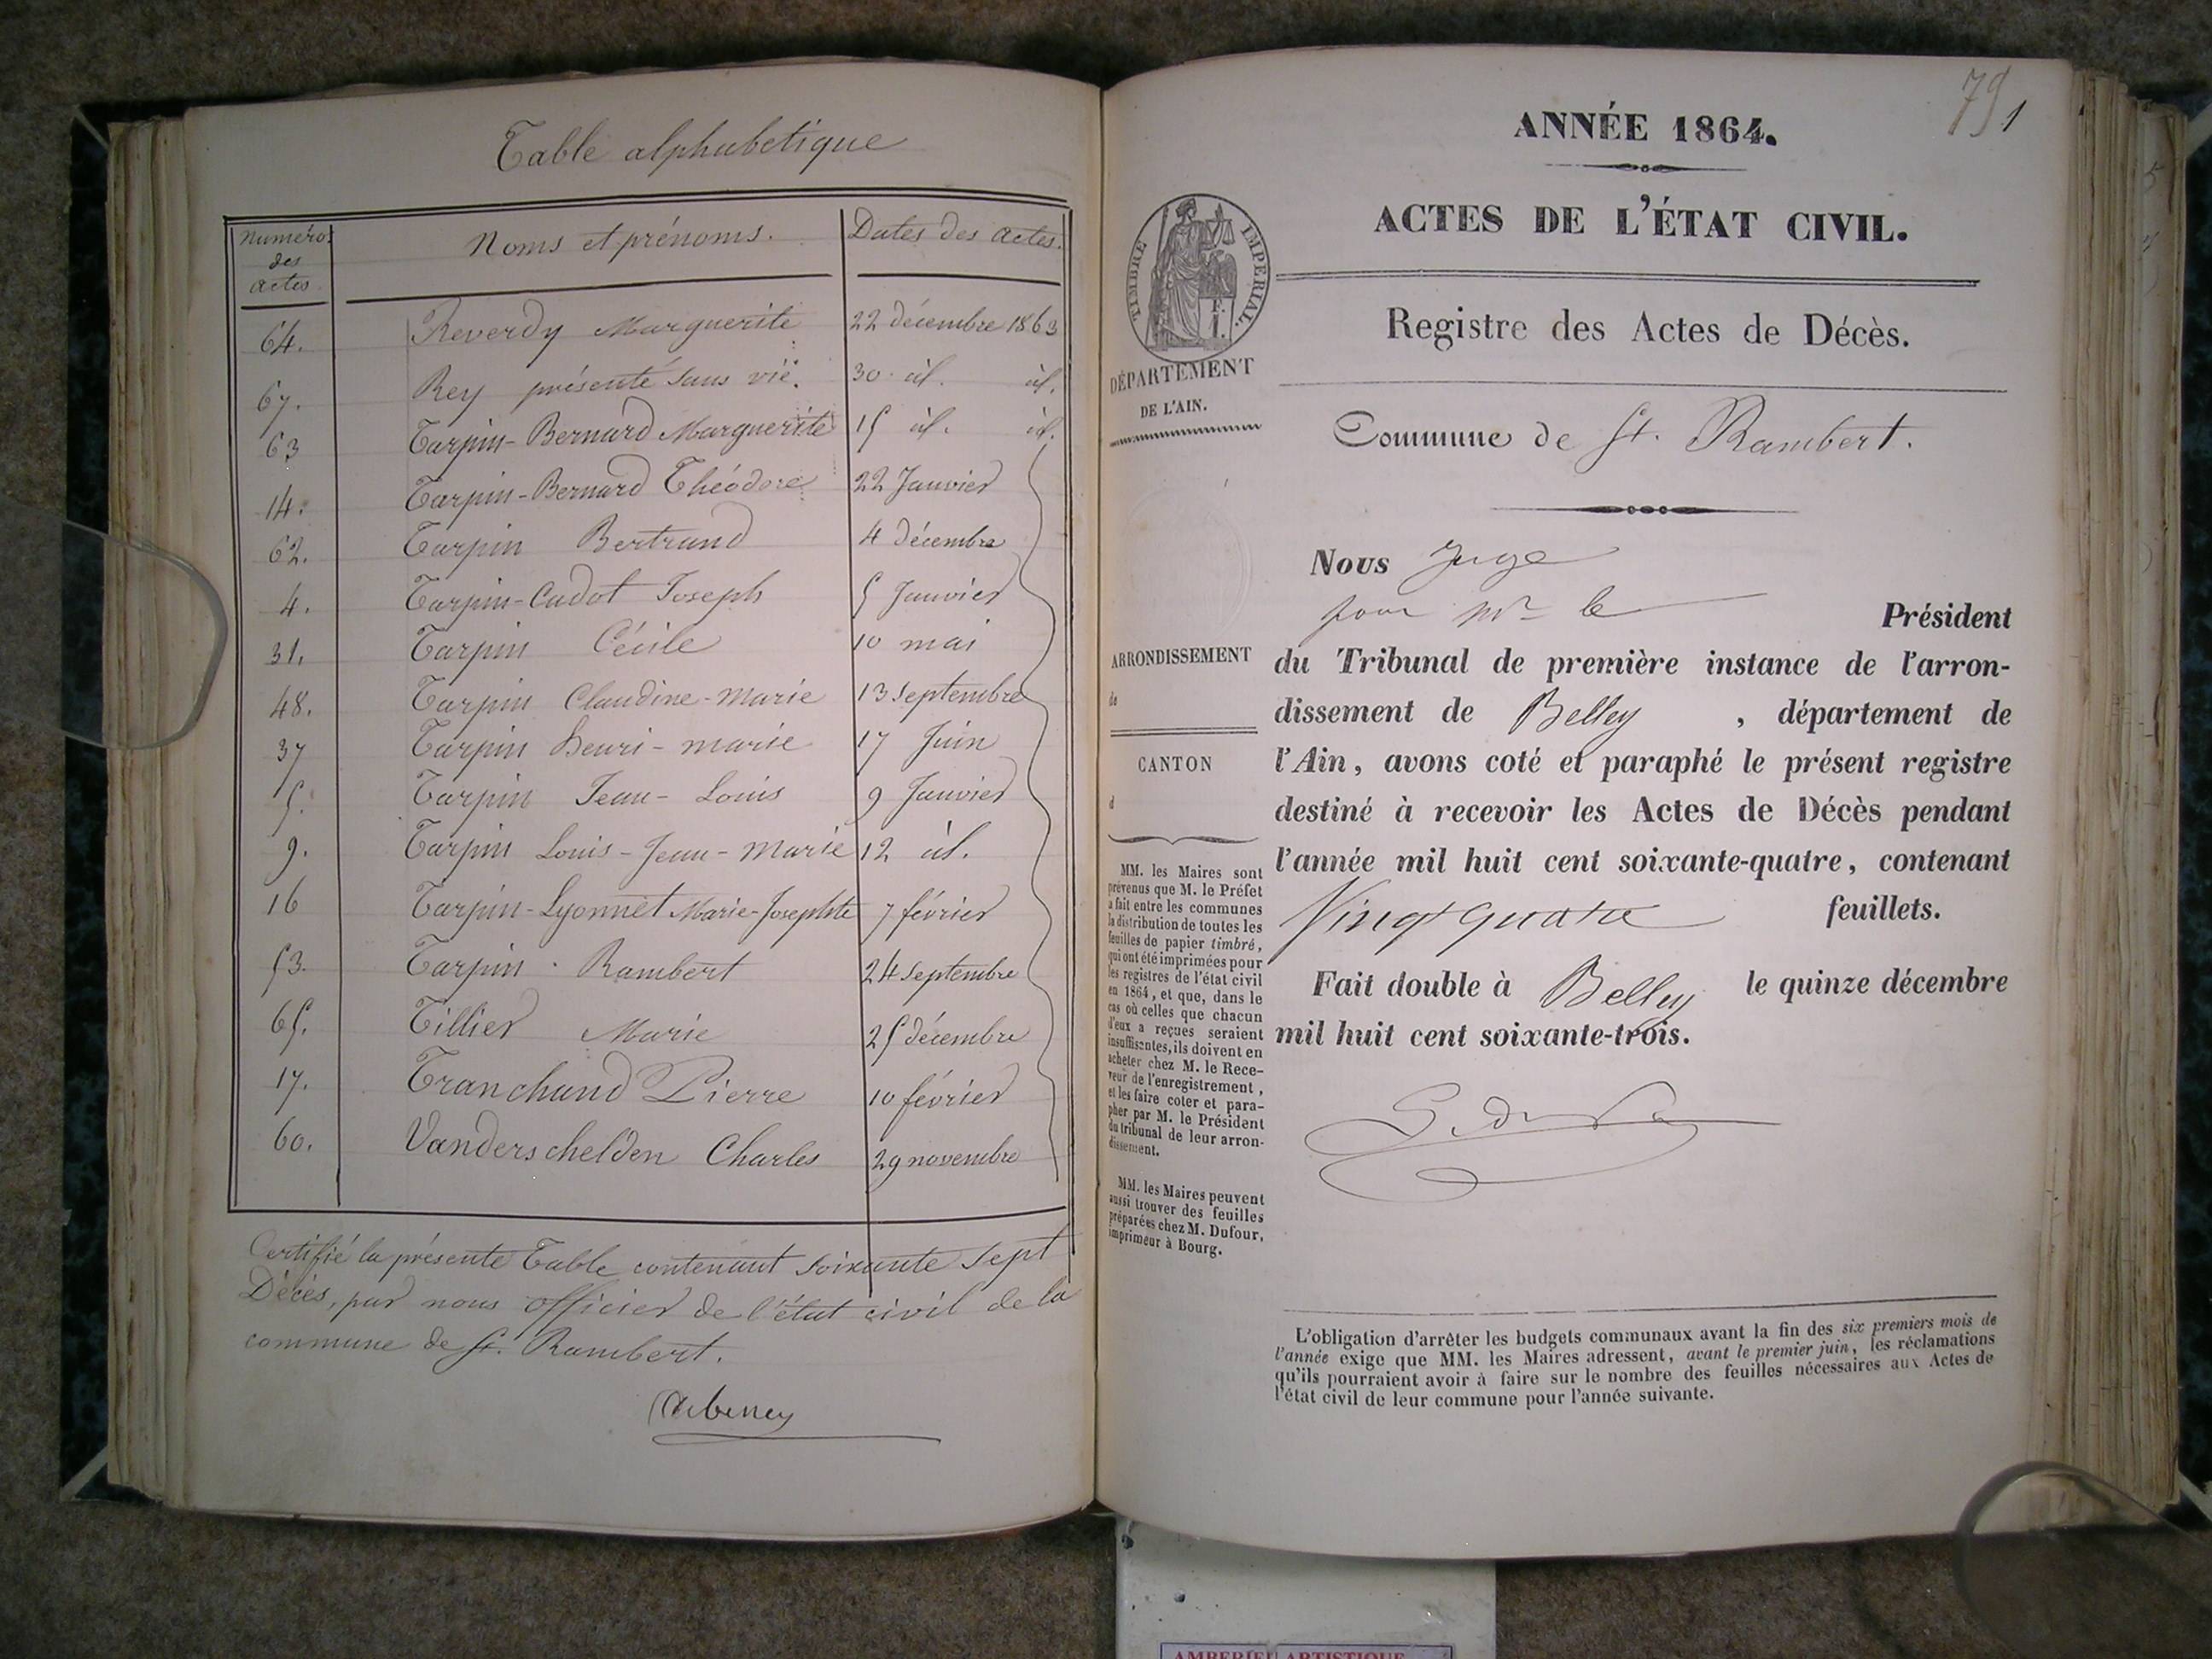 Table alphabetique
Numéros des actes
Noms et prénoms.
Dates des actes.
64. Reverdy Marguerite 22 décembre 1863
67. Rey présenté sans vie. 30 id. id.
63 Tarpin-Bernard Marguerite 15 id. id.
14. Tarpin-Bernard Théodore 22 Janvier
62. Tarpin Bertrand 4 décembre
4. Tarpin-Cadot Joseph 5 Janvier
31. Tarpin Cécile 10 mai
48. Tarpin Claudine-Marie 13 septembre
37 Tarpin Henri-marie 17 Juin
5. Tarpin Jean-Louis 9 Janvier
9. Tarpin Louis-Jean-Marie 12 id.
16 Tarpin-Lyonnet Marie-Josephte 7 février
53. Tarpin Rambert 24 septembre
65. Tillier Marie 25 décembre
17. Tranchand Pierre 10 février
60. Vanderschelden Charles 29 novembre
Certifié la présente Table contenant soixante sept
Décès, par nous officier de l'état civil de la
commune de St. Rambert.
79 1
ANNÉE 1864.
ACTES DE L'ÉTAT CIVIL.
TIMBRE IMPÉRIAL.
Registre des Actes de Décès.
DÉPARTEMENT
DE L'AIN.
Commune de St. Rambert.
Nous Juge
pour Mr le Président
ARRONDISSEMENT
de
CANTON
d
du Tribunal de première instance de l'arron-
dissement de Belley, département de
l'Ain, avons coté et paraphé le présent registre
destiné à recevoir les Actes de Décès pendant
l'année mil huit cent soixante-quatre, contenant
Vingt quatre feuillets.
Fait double à Belley le quinze décembre
mil huit cent soixante-trois.
MM. les Maires sont
prévenus que M. le Préfet
a fait entre les communes
la distribution de toutes les
feuilles de papier timbré,
qui ont été imprimées pour
les registres de l'état civil
en 1864, et que, dans le
cas où celles que chacun
d'eux a reçues seraient
insuffisantes, ils doivent en
acheter chez M. le Rece-
veur de l'enregistrement,
et les faire coter et para-
pher par M. le Président
du tribunal de leur arron-
dissement.
MM. les Maires peuvent
aussi trouver des feuilles
préparées chez M. Dufour,
imprimeur à Bourg.
L'obligation d'arrêter les budgets communaux avant la fin des six premiers mois de
l'année exige que MM. les Maires adressent, avant le premier juin, les réclamations
qu'ils pourraient avoir à faire sur le nombre des feuilles nécessaires aux Actes de
l'état civil de leur commune pour l'année suivante.
AMBERIEU ARTISTIQUE